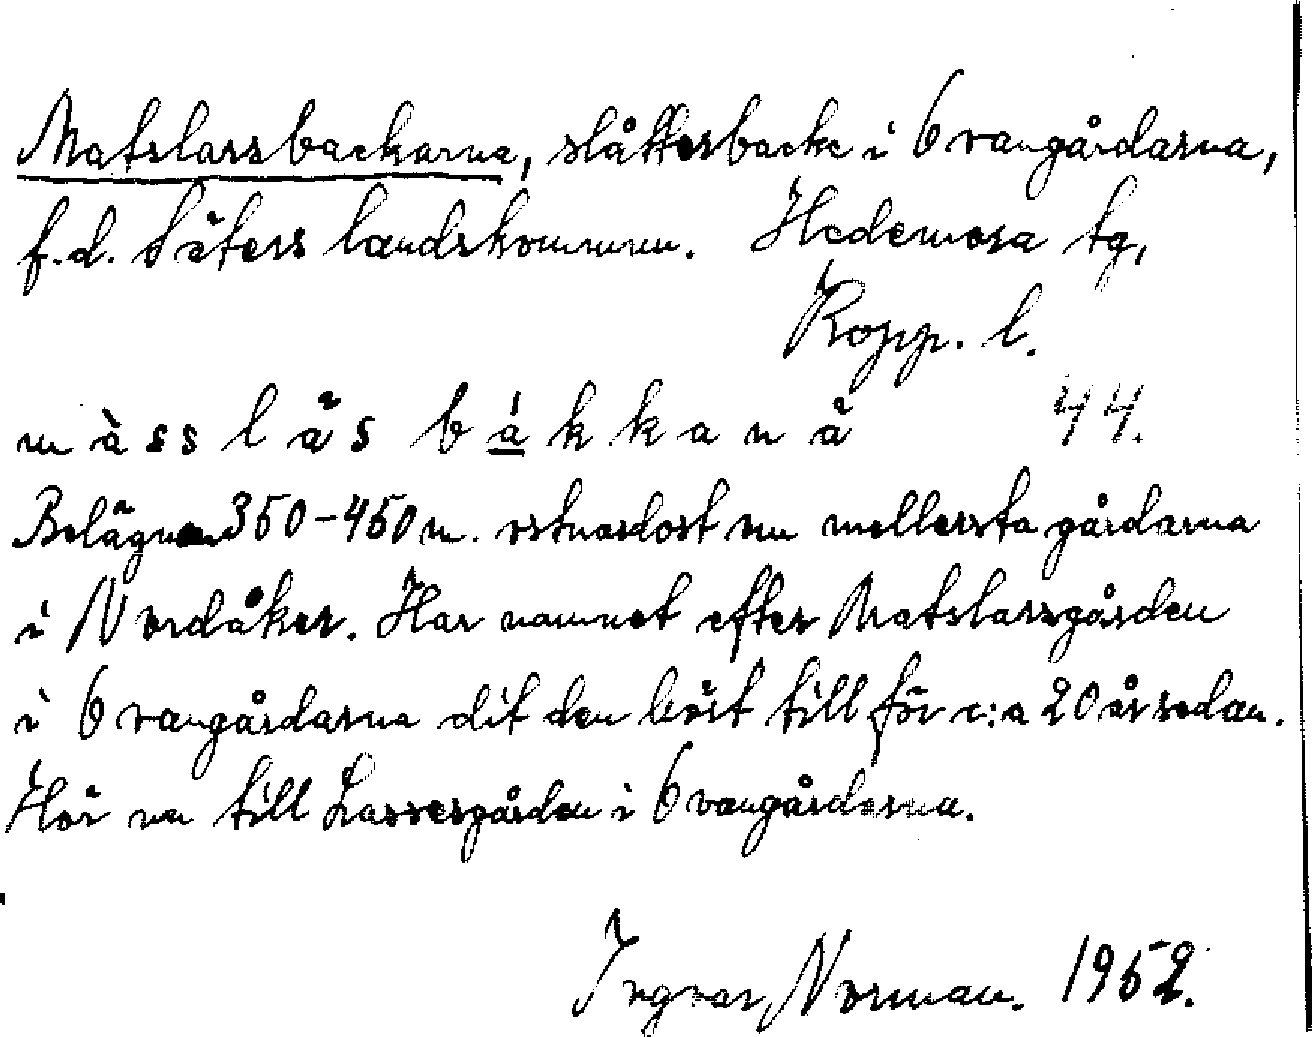 Matslarsbackarna, slåtterbacke i Ovangårdarna,
f.d. Säters landskommun. Hedemora tg,
Kopp. l.
màss lås bákkanå 44.
Belägna 350-450 m. ostnordost om mellersta gårdarna
i Nordåker. Har namnet efter Matslarsgården
i Ovangårdarna dit den hört till för c:a 20 år sedan.
Hör nu till Lassesgården i Ovangårdarna.
Ingvar Norman. 1952.